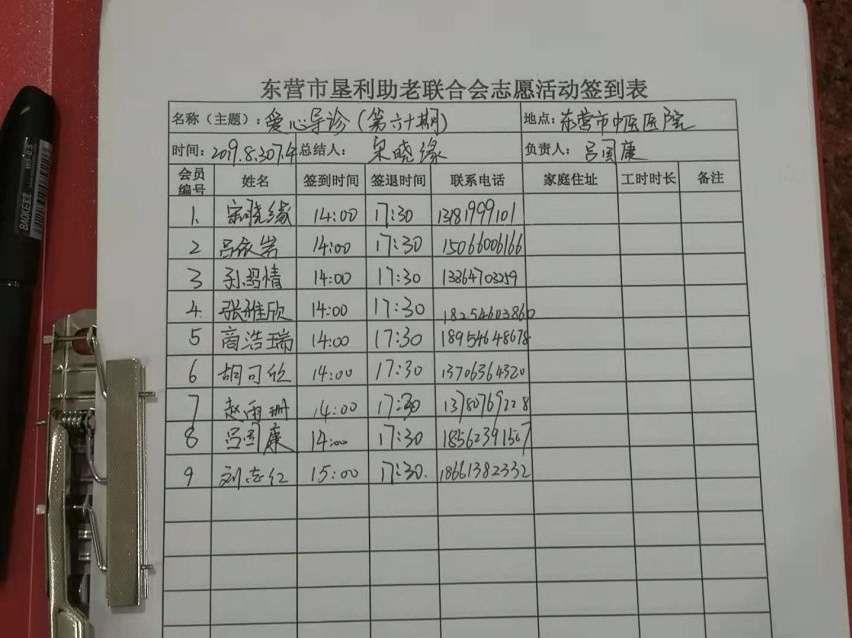 东营市垦利助老联合会志愿活动签到表
名称（主题）：爱心导诊（第六十期） 地点：东营市中医医院
时间：2019.8.30下午 总结人：宋晓缘 负责人：吕国康
会员编号 姓名 签到时间 签退时间 联系电话 家庭住址 工时时长 备注
1. 宋晓缘 14:00 17:30 13181999101
2 吕依岩 14:00 17:30 15066006166
3 14:00 17:30 13864703259
4. 张雅欣 14:00 17:30 18254603860
5 商浩瑞 14:00 17:30 18954648678
6 胡可欣 14:00 17:30 13706364320
7 赵雨珊 14:00 17:30 13780769228
8 吕国康 14:00 17:30 18562391567
9 刘志红 15:00 17:30. 18661382332
BAOKE宝克